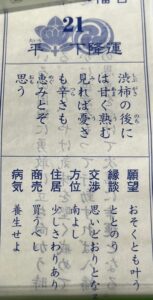 21
平 下降運
渋柿の後に
は甘く熟む
見れば憂き
も辛きも
恵みとぞ
思う
願望 おそくとも叶う
縁談 ととのう
交渉 思いどおりとな
方位 南よし
住居 少しさわりあり
商売 買うべし
病気 養生せよ